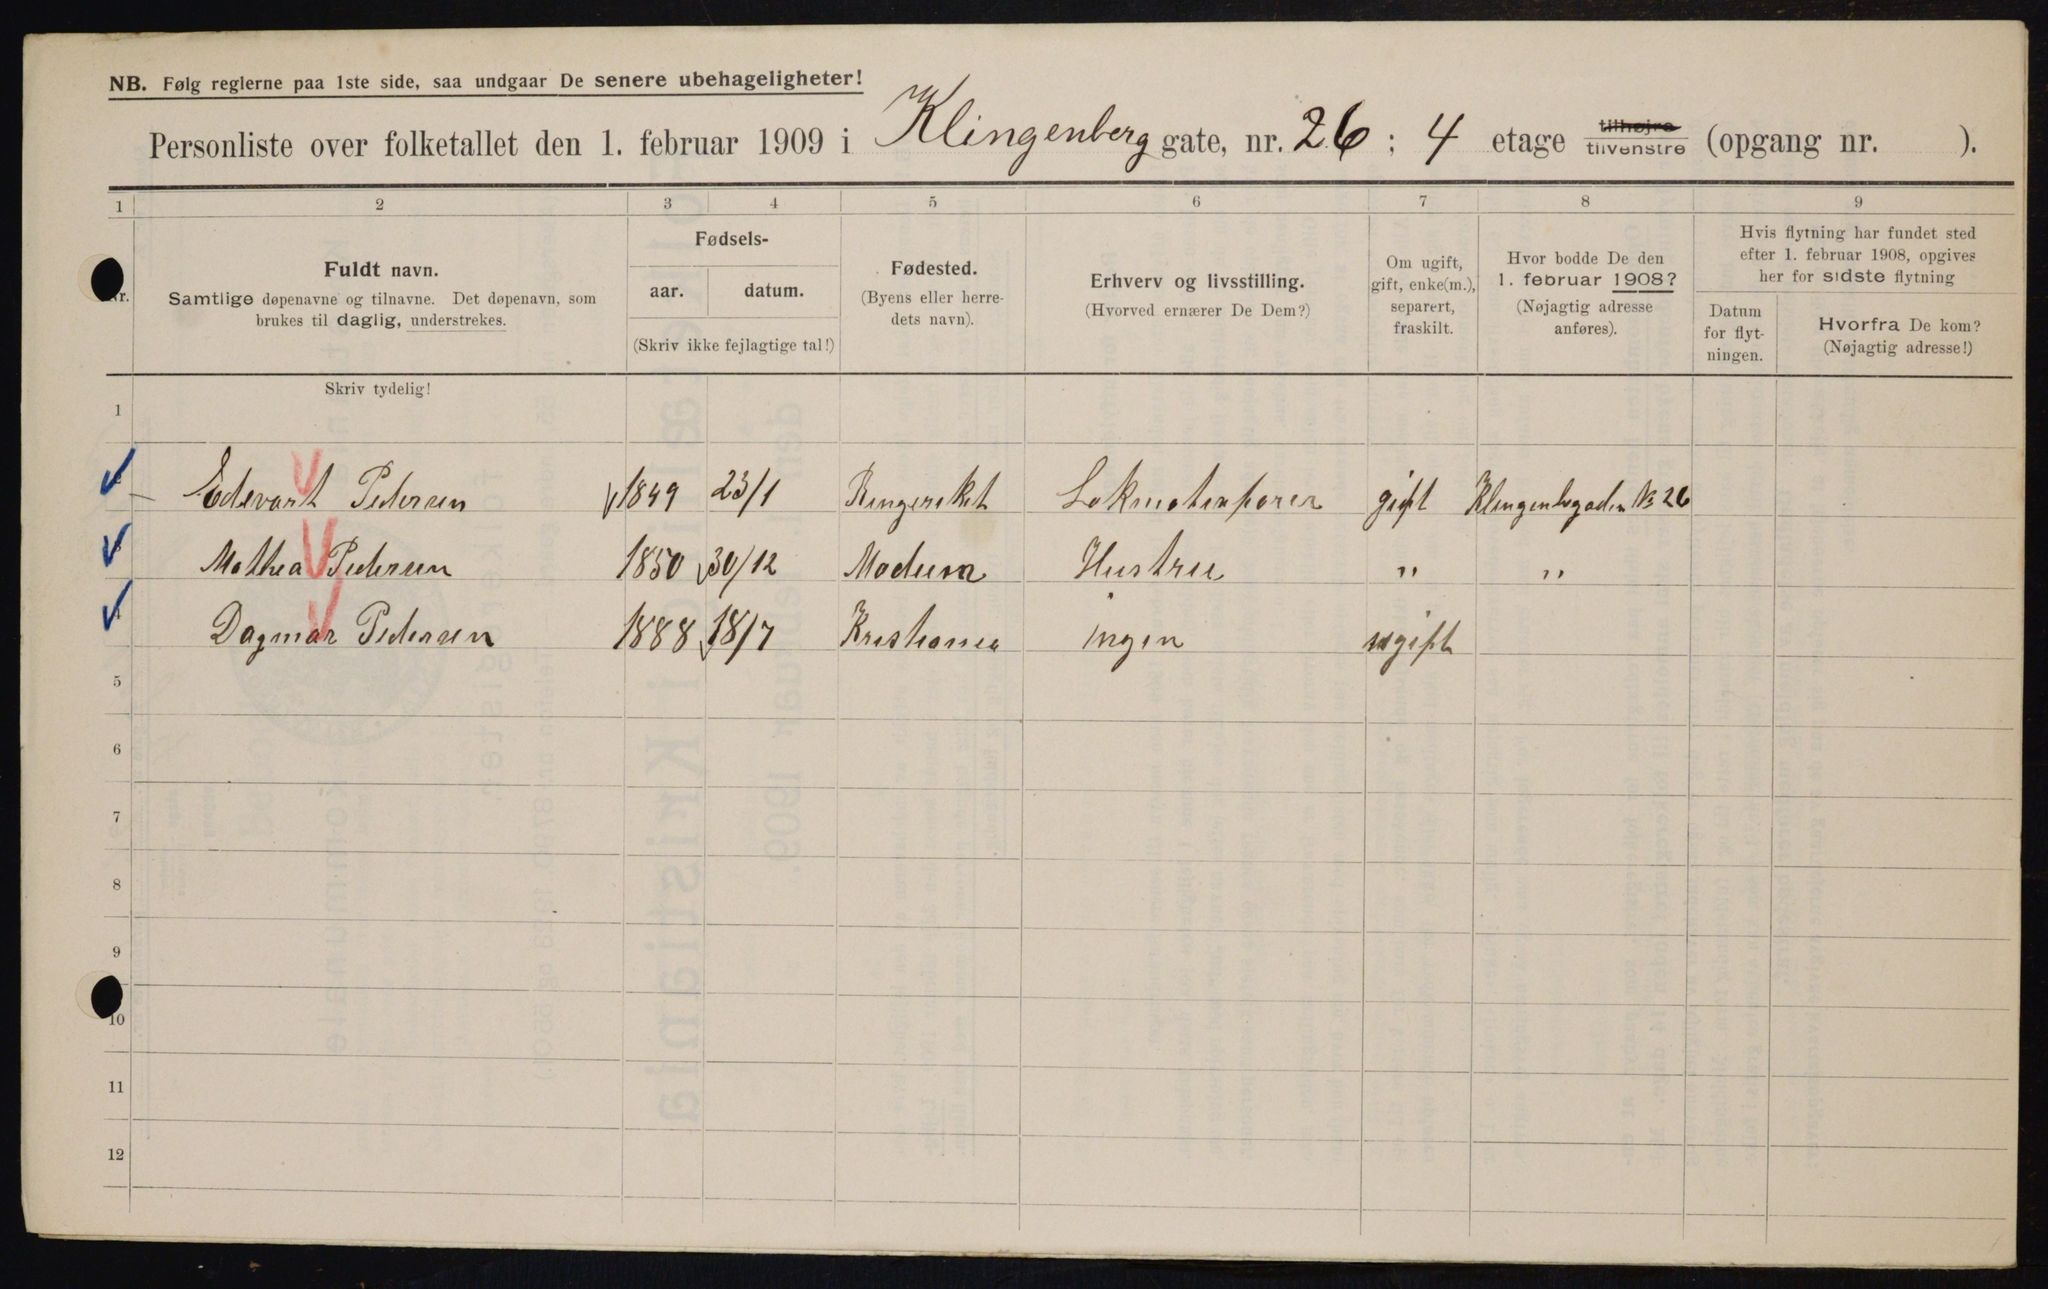 NB. Følg reglerne paa 1ste side, saa undgaar De senere ubehageligheter!
Personliste over folketallet den 1. februar 1909 i Klingenberg gate, nr. 26 ; 4 etage tilhøjre tilvenstre (opgang nr. ).
1 2 3 4 5 6 7 8 9
Nr.
Fuldt navn.
Samtlige døpenavne og tilnavne. Det døpenavn, som
brukes til daglig, understrekes.
Fødsels-
aar. datum.
(Skriv ikke fejlagtige tal!)
Fødested.
(Byens eller herre-
dets navn).
Erhverv og livsstilling.
(Hvorved ernærer De Dem?)
Om ugift,
gift, enke(m.),
separert,
fraskilt.
Hvor bodde De den
1. februar 1908?
(Nøjagtig adresse
anføres).
Hvis flytning har fundet sted
efter 1. februar 1908, opgives
her for sidste flytning
Datum
for flyt-
ningen.
Hvorfra De kom?
(Nøjagtig adresse!)
Skriv tydelig!
1
Edevart Pedersen 1849 23/1 Ringeriket Lokmotivfører gift Klingenbgaden No 26
Mathea Pedersen 1850 30/12 Modum Hustru " "
Dagmar Pedersen 1888 18/7 Kristiania ingen ugift
5
6
7
8
9
10
11
12